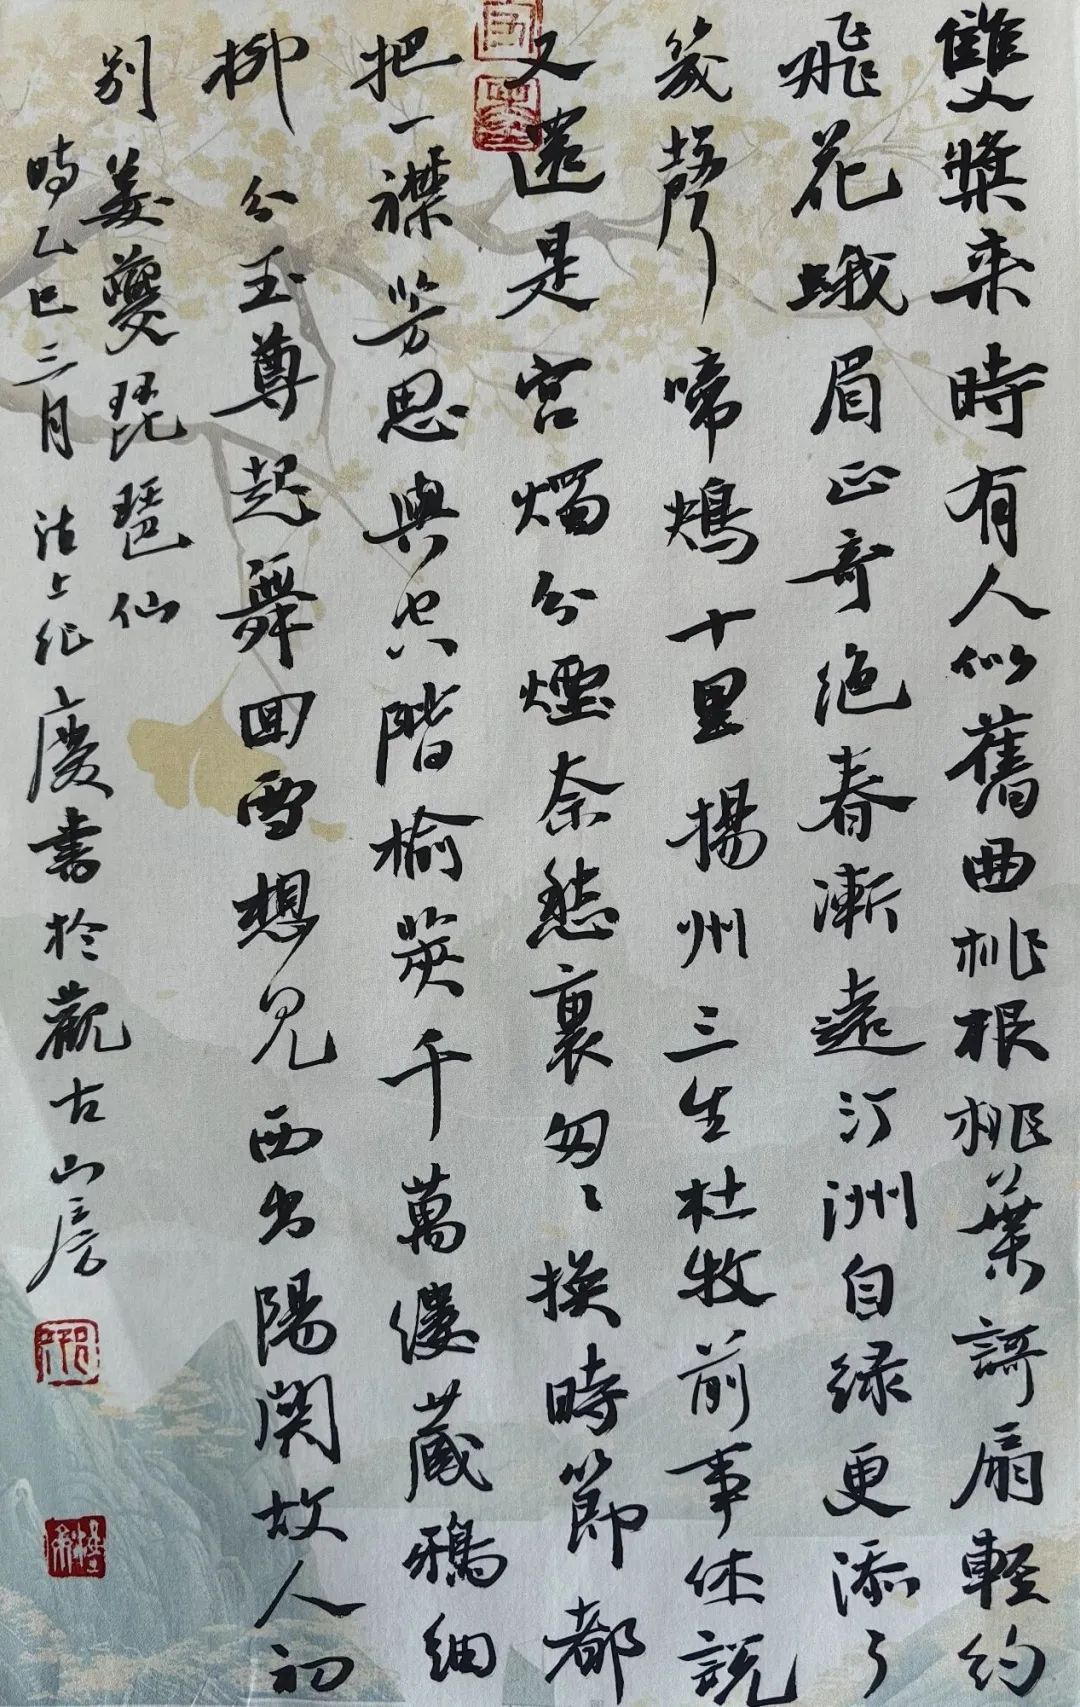 雙槳來時有人似舊曲桃根桃葉謌扇輕約
飛花蛾眉正奇絕春漸遠汀洲自绿更添了
幾聲啼鴂十里揚州三生杜牧前事休説
又還是宫燭分煙奈愁裏匆匆換時節都
把一襟芳思與空階榆莢千萬縷藏鴉細
柳分玉尊起舞回雪想見西出陽関故人初
别姜夔琵琶仙
時乙巳三月沽上纪慶書於觀古山房